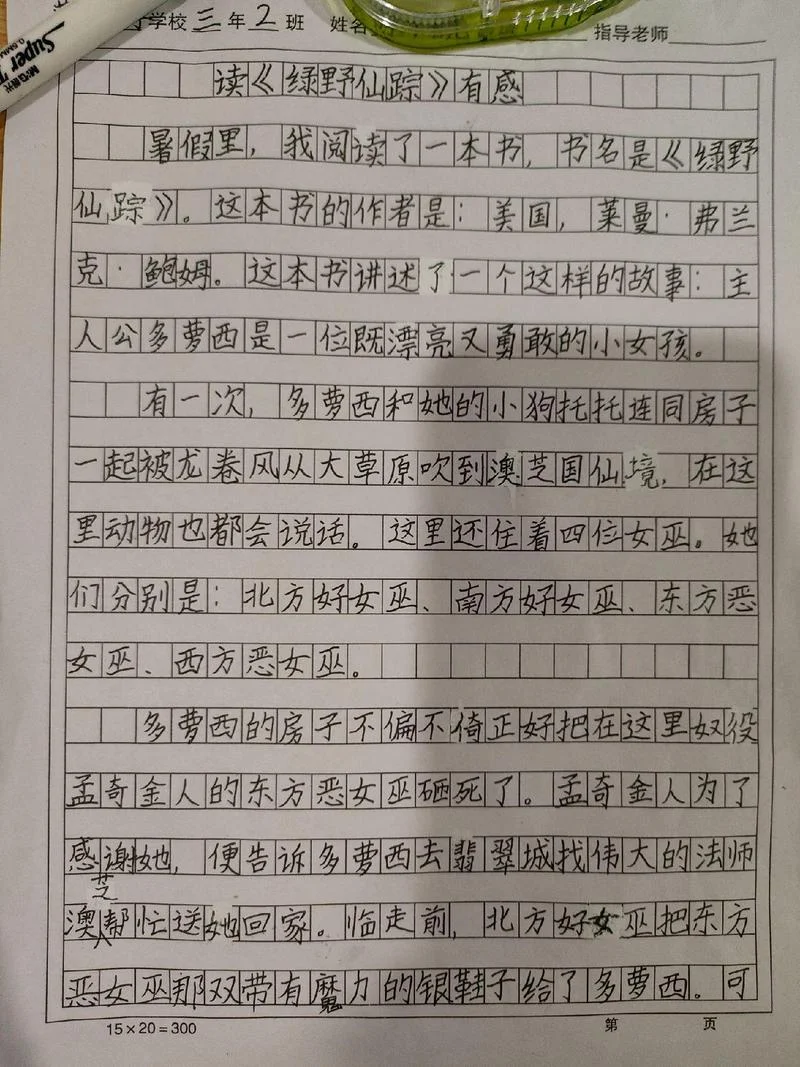 学校三年2班 姓名 指导老师
Super
读《绿野仙踪》有感
暑假里，我阅读了一本书，书名是《绿野
仙踪》。这本书的作者是：美国，莱曼·弗兰
克·鲍姆。这本书讲述了一个这样的故事：主
人公多萝西是一位既漂亮又勇敢的小女孩。
有一次，多萝西和她的小狗托托连同房子
一起被龙卷风从大草原吹到澳芝国仙境，在这
里动物也都会说话。这里还住着四位女巫。她
们分别是：北方好女巫、南方好女巫、东方恶
女巫、西方恶女巫。
多萝西的房子不偏不倚正好把在这里奴役
孟奇金人的东方恶女巫砸死了。孟奇金人为了
感谢她，便告诉多萝西去翡翠城找伟大的法师
澳芝帮忙送她回家。临走前，北方好女巫把东方
恶女巫那双带有魔力的银鞋子给了多萝西。可
15×20=300 第 页